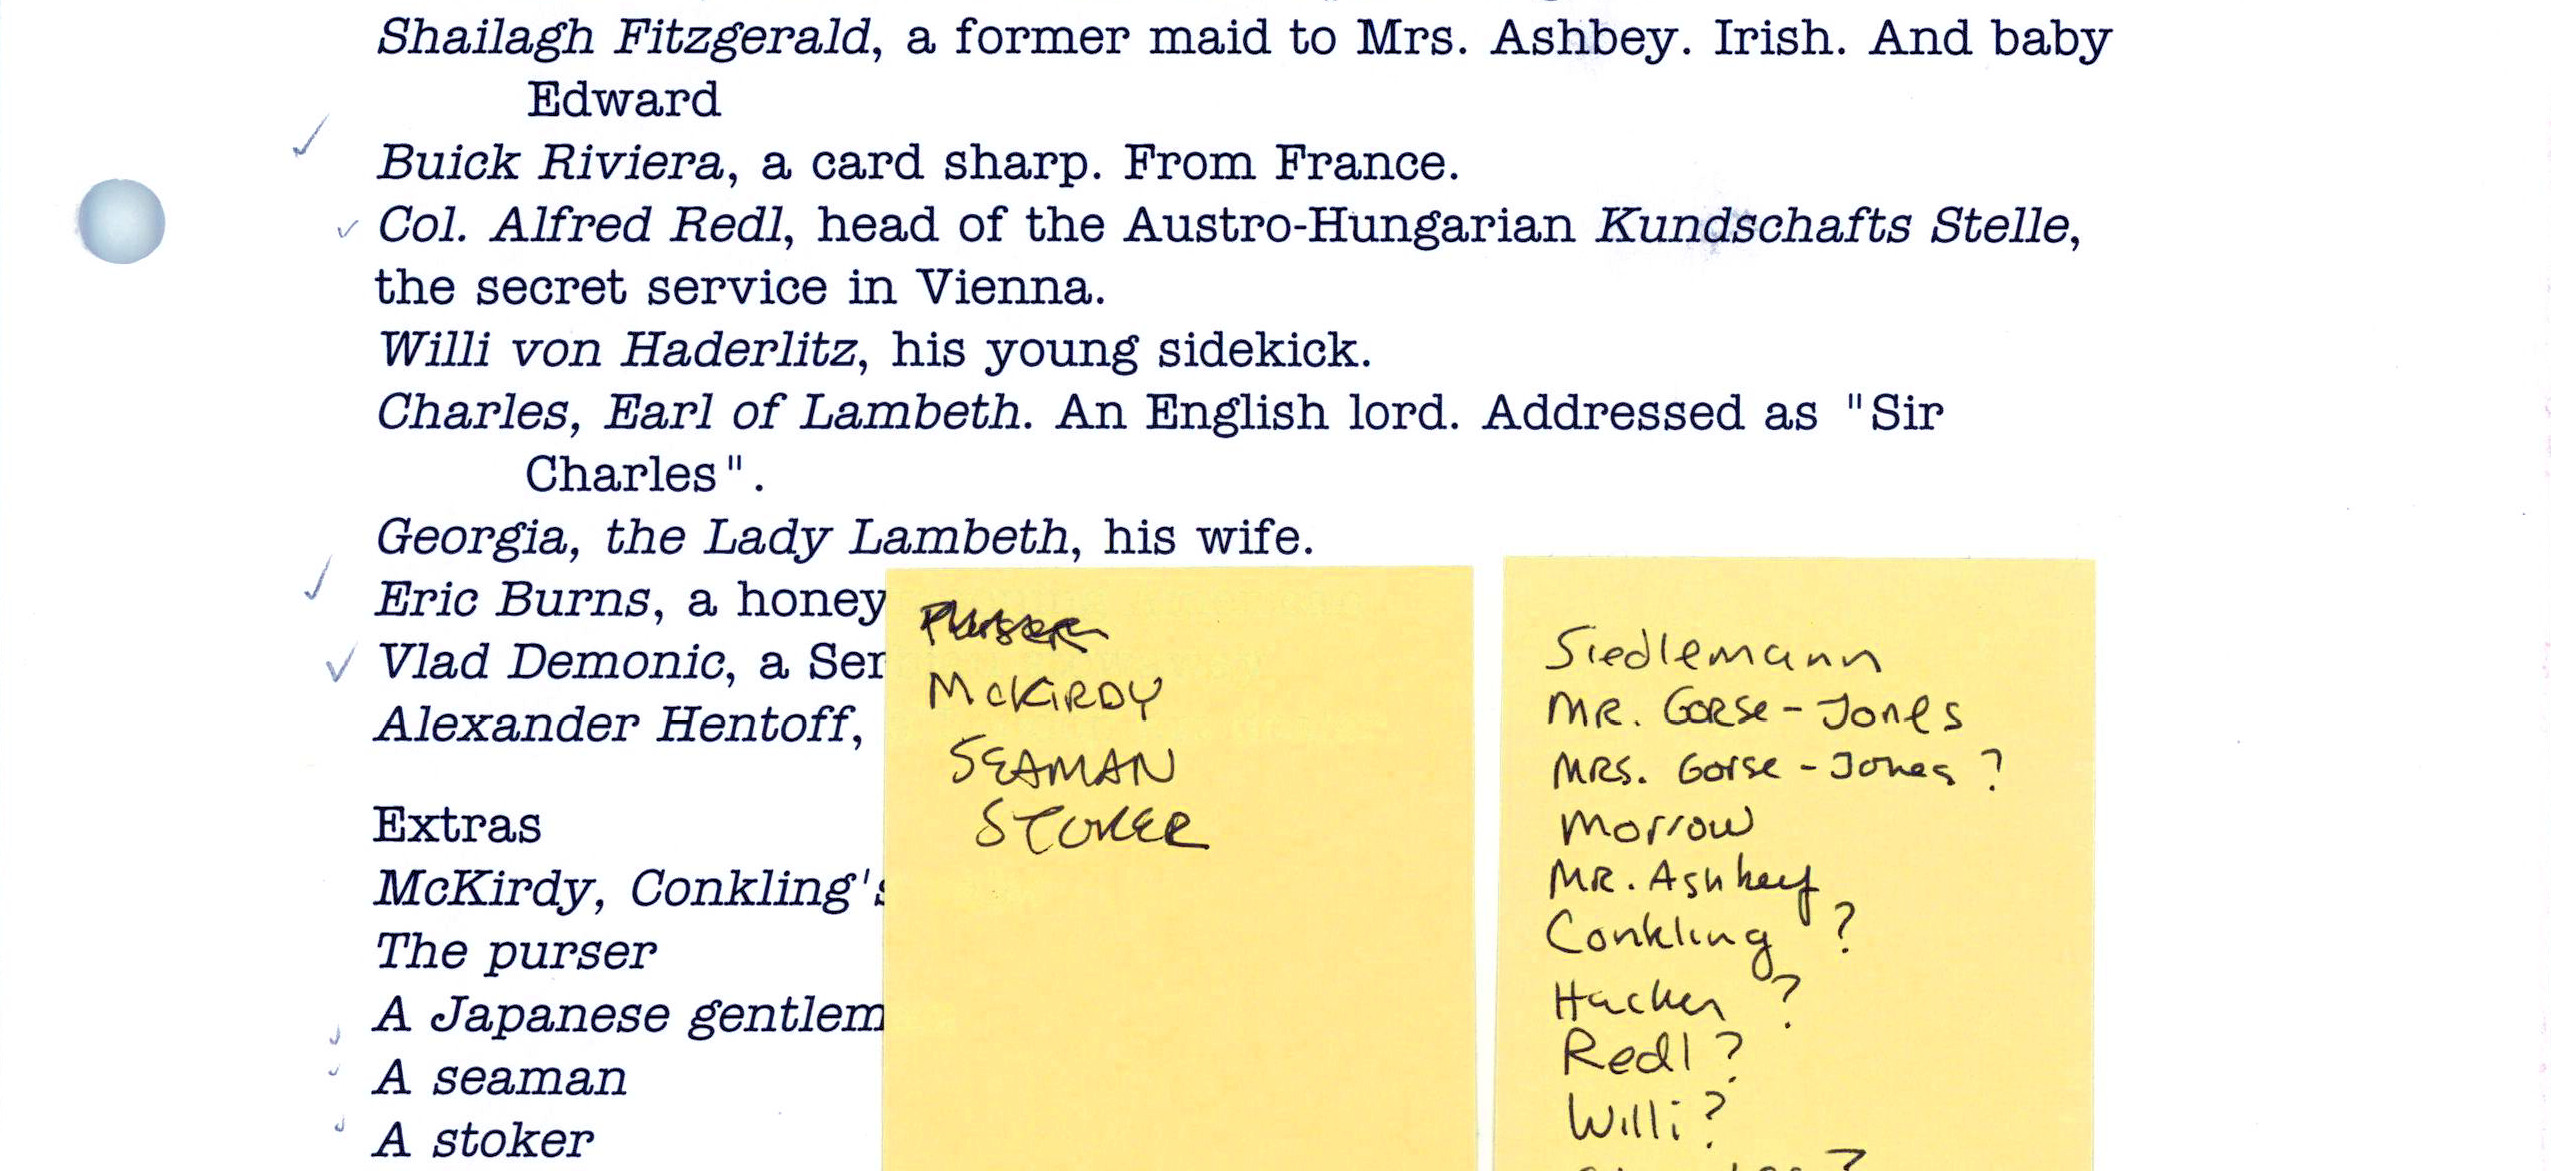 Shailagh Fitzgerald, a former maid to Mrs. Ashbey. Irish. And baby
Edward
Buick Riviera, a card sharp. From France.
Col. Alfred Redl, head of the Austro-Hungarian Kundschafts Stelle,
the secret service in Vienna.
Willi von Haderlitz, his young sidekick.
Charles, Earl of Lambeth. An English lord. Addressed as "Sir
Charles".
Georgia, the Lady Lambeth, his wife.
Eric Burns, a honey
Vlad Demonic, a Ser
Alexander Hentoff,
Extras
McKirdy, Conkling's
The purser
A Japanese gentlem
A seaman
A stoker
Purser
McKIRDY
SEAMAN
STOKER
Siedlemann
MR. Gorse-Jones
MRS. Gorse-Jones ?
Morrow
MR. Ashbey
Conkling ?
Hacker ?
Redl ?
Willi ?